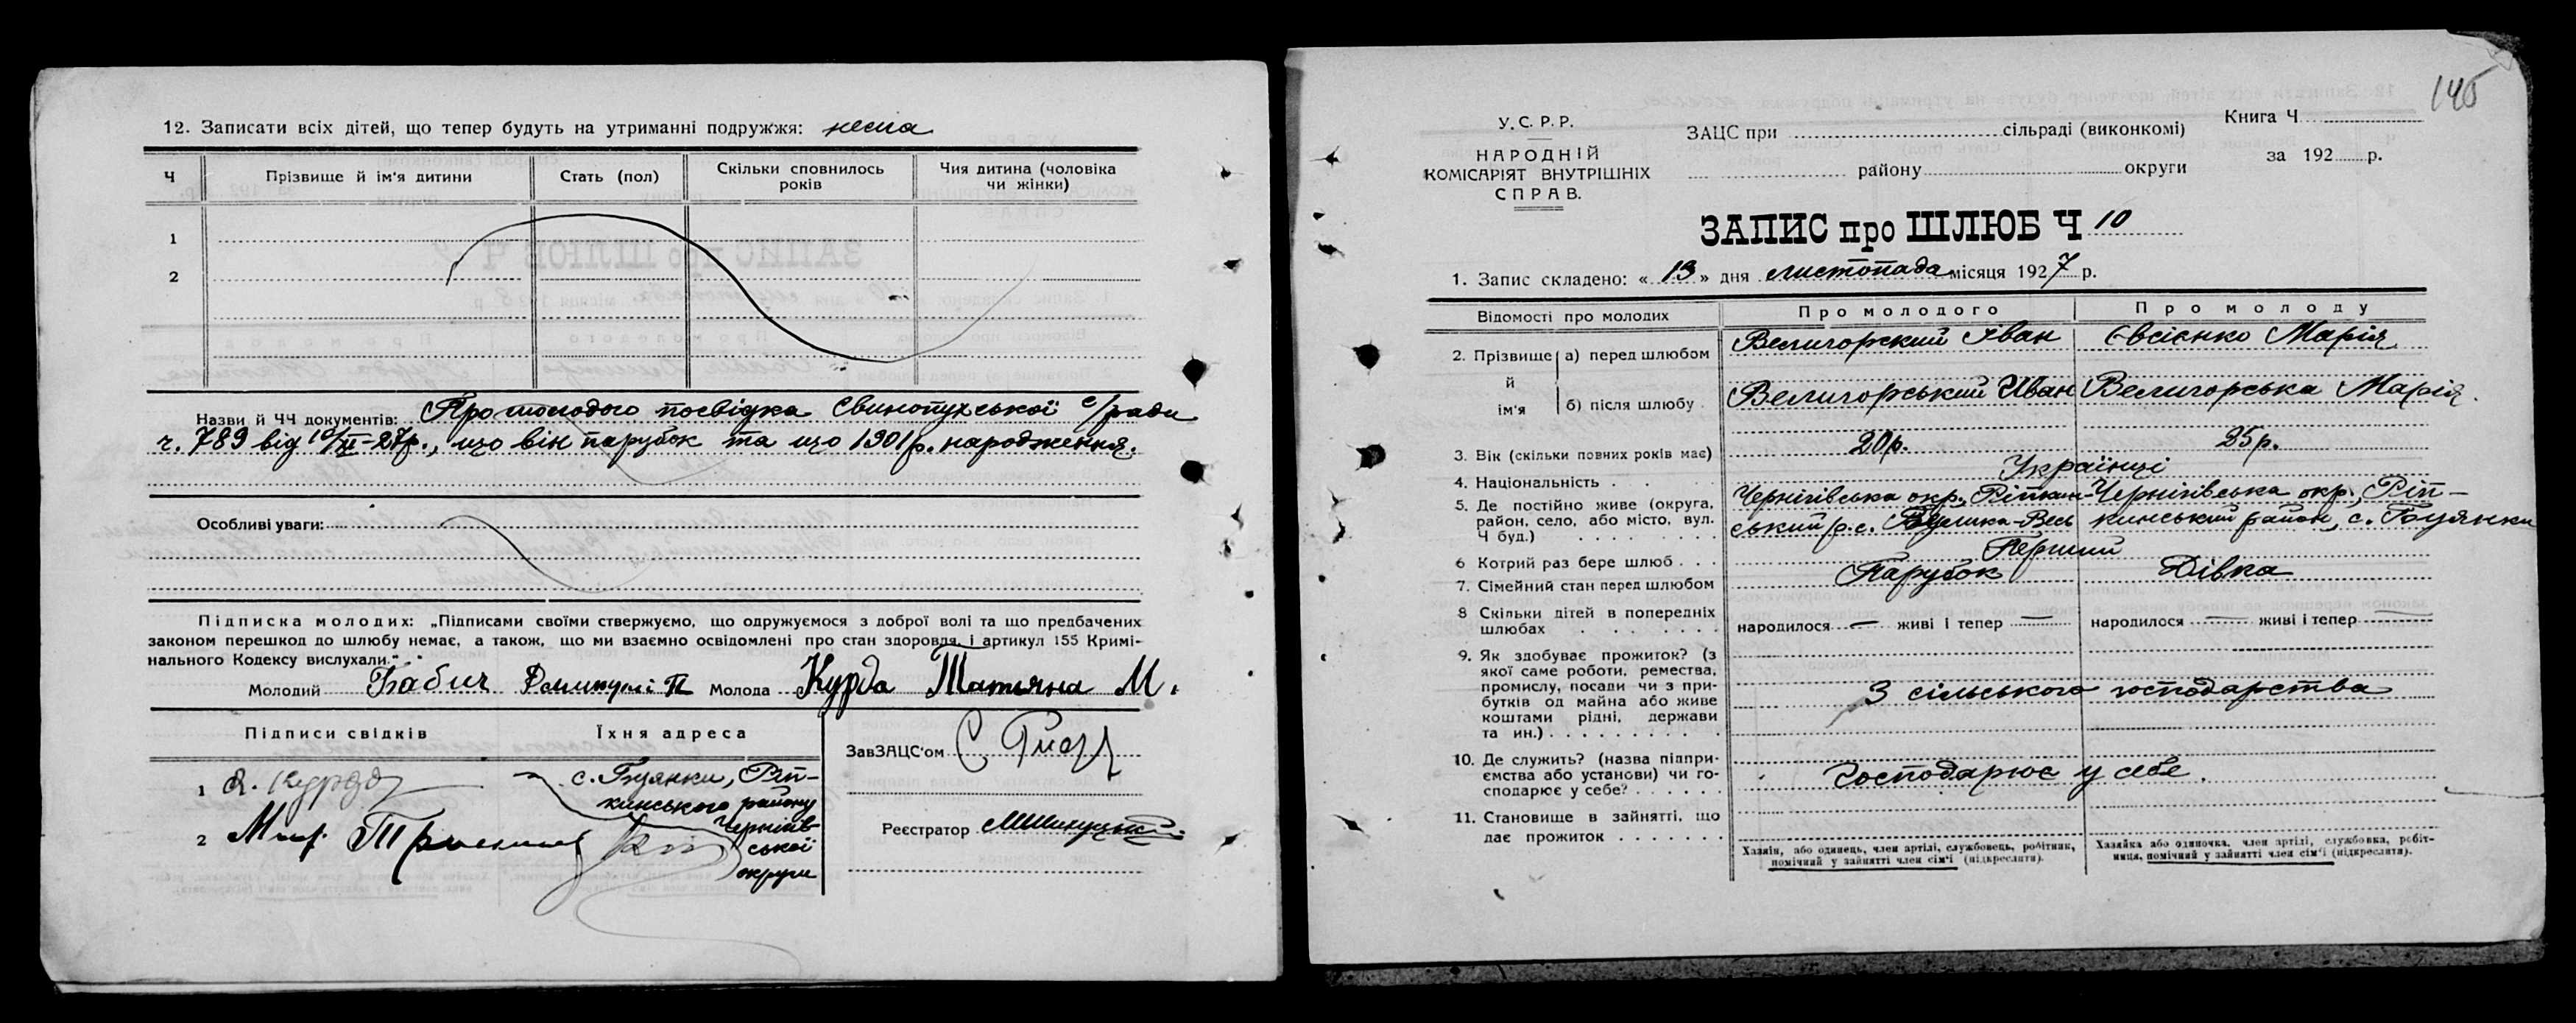 12. Записати всіх дітей, що тепер будуть на утриманні подружжя: нема
Ч
Прізвище й ім'я дитини
Стать (пол)
Скільки сповнилось років
Чия дитина (чоловіка чи жінки)
1
2
Назви й ЧЧ документів: Про молодого посвідка Свинопухської с/ради
ч. 789 від 10/XI-27р., що він парубок та що 1901 р. народження.
Особливі уваги:
Підписка молодих: „Підписами своїми ствержуємо, що одружуємося з доброї волі та що предбачених
законом перешкод до шлюбу немає, а також, що ми взаємно освідомлені про стан здоровля, і артикул 155 Кримі-
нального Кодексу вислухали."
Молодий Бабич П Молода Курда Татяна М.
Підписи свідків
Їхня адреса
1
2
с. Буянки, Ріп-
кинського району
Чернігів-
ської
округи
ЗавЗАЦС'ом
Реєстратор
145
У. С. Р. Р.
НАРОДНІЙ
КОМІСАРІЯТ ВНУТРІШНІХ
СПРАВ.
ЗАЦС при сільраді (виконкомі)
району округи
Книга Ч
за 192 р.
ЗАПИС про ШЛЮБ Ч 10
1. Запис складено: « 13 » дня листопада місяця 1927 р.
Відомості про молодих
Про молодого
Про молоду
2. Прізвище й ім'я
а) перед шлюбом
Величорский Іван
Євсієнко Марія
б) після шлюбу
Величорський Иван
Величорська Марія.
3. Вік (скільки повних років має)
20р.
25р.
4. Національність
Українці
5. Де постійно живе (округа,
район, село, або місто, вул.
Ч буд.)
Чернігівська окр., Ріпкин-
ський р. с. Велика-Весь
Чернігівська окр., Ріп-
кинський район, с. Буянки
6 Котрий раз бере шлюб
Перший
7. Сімейний стан перед шлюбом
Парубок
Дівка
8 Скільки дітей в попередніх
шлюбах
народилося — живі і тепер —
народилося — живі і тепер —
9. Як здобуває прожиток? (з
якої саме роботи, ремества,
промислу, посади чи з при-
бутків од майна або живе
коштами рідні, держави
та ин.)
З сільського господарства
10. Де служить? (назва підпри-
ємства або установи) чи го-
сподарює у себе?
Господарює у себе.
11. Становище в зайнятті, що
дає прожиток
Хазяїн, або одинець, член артілі, службовець, робітник,
помічний у зайнятті член сім'ї (підкреслити).
Хазяйка або одиночка, член артілі, службовка, робіт-
ниця, помічний у зайнятті член сім'ї (підкреслити).